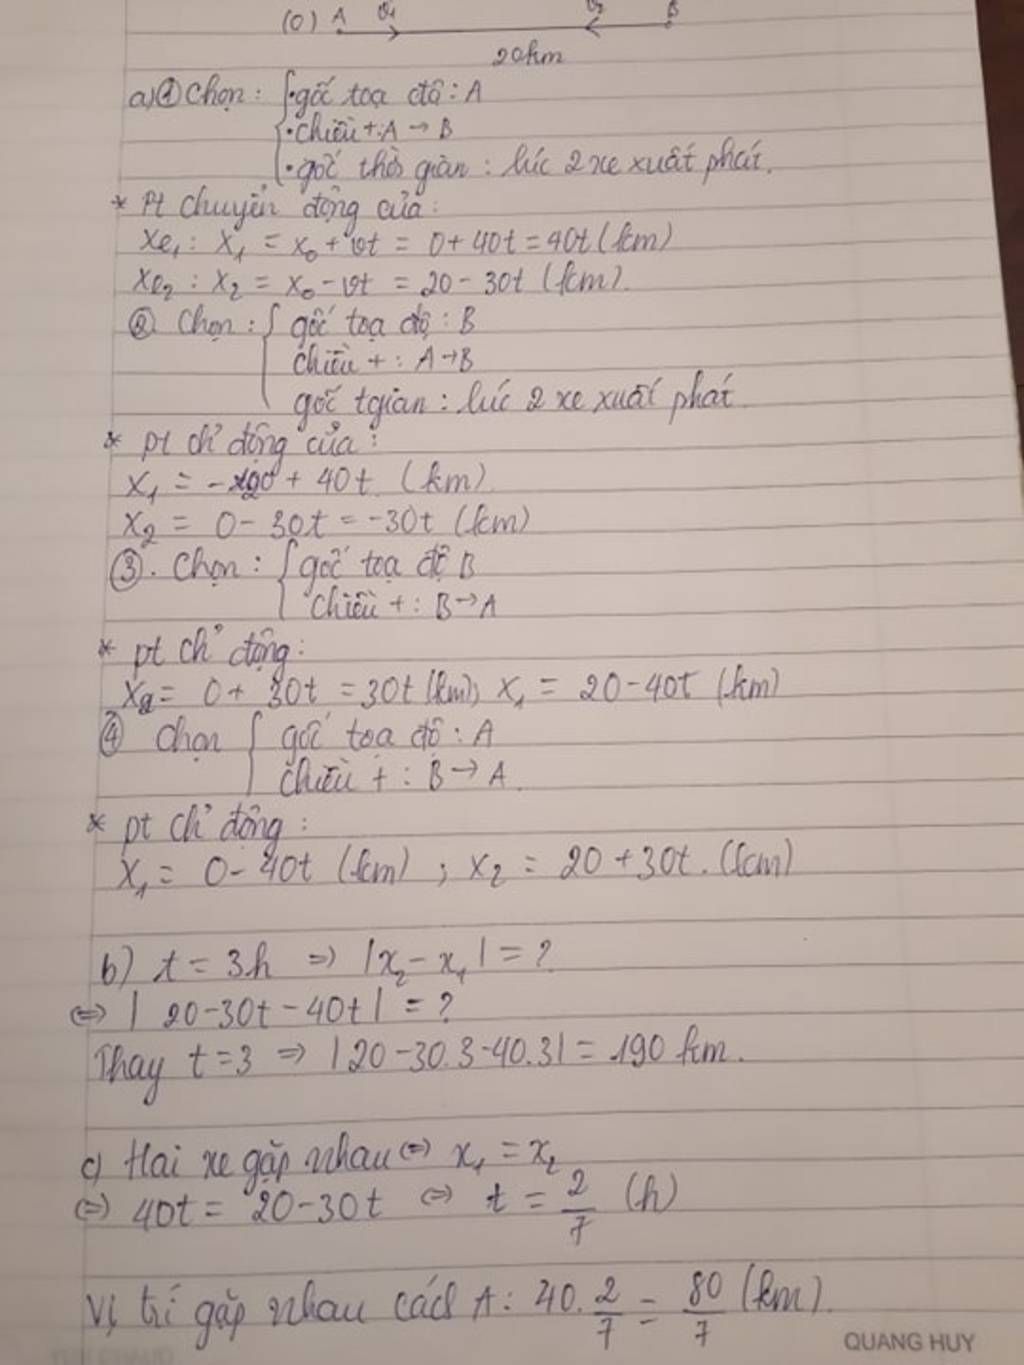 (0) A v₁ v₂ B
20km
a) ① Chọn: { • gốc toạ độ: A
• chiều +: A → B
• gốc thời gian: lúc 2 xe xuất phát.
* Pt chuyển động của:
Xe₁: x₁ = x₀ + vt = 0 + 40t = 40t (km)
Xe₂: x₂ = x₀ - vt = 20 - 30t (km).
② Chọn: { gốc toạ độ: B
chiều +: A → B
gốc tgian: lúc 2 xe xuất phát
* pt ch' động của:
x₁ = - + 40t (km)
x₂ = 0 - 30t = -30t (km)
③. Chọn: { gốc toạ độ B
chiều +: B → A
* pt ch' động:
x₂ = 0 + 30t = 30t (km); x₁ = 20 - 40t (km)
④ Chọn { gốc toạ độ: A
chiều +: B → A.
* pt ch' động:
x₁ = 0 - 40t (km) ; x₂ = 20 + 30t. (km)
b) t = 3h ⇒ |x₂ - x₁| = ?
⇔ | 20 - 30t - 40t | = ?
Thay t = 3 ⇒ |20 - 30.3 - 40.3| = 190 km.
c) Hai xe gặp nhau ⇔ x₁ = x₂
⇔ 40t = 20 - 30t ⇔ t = 2/7 (h)
Vị trí gặp nhau cách A: 40. 2/7 = 80/7 (km).
QUANG HUY